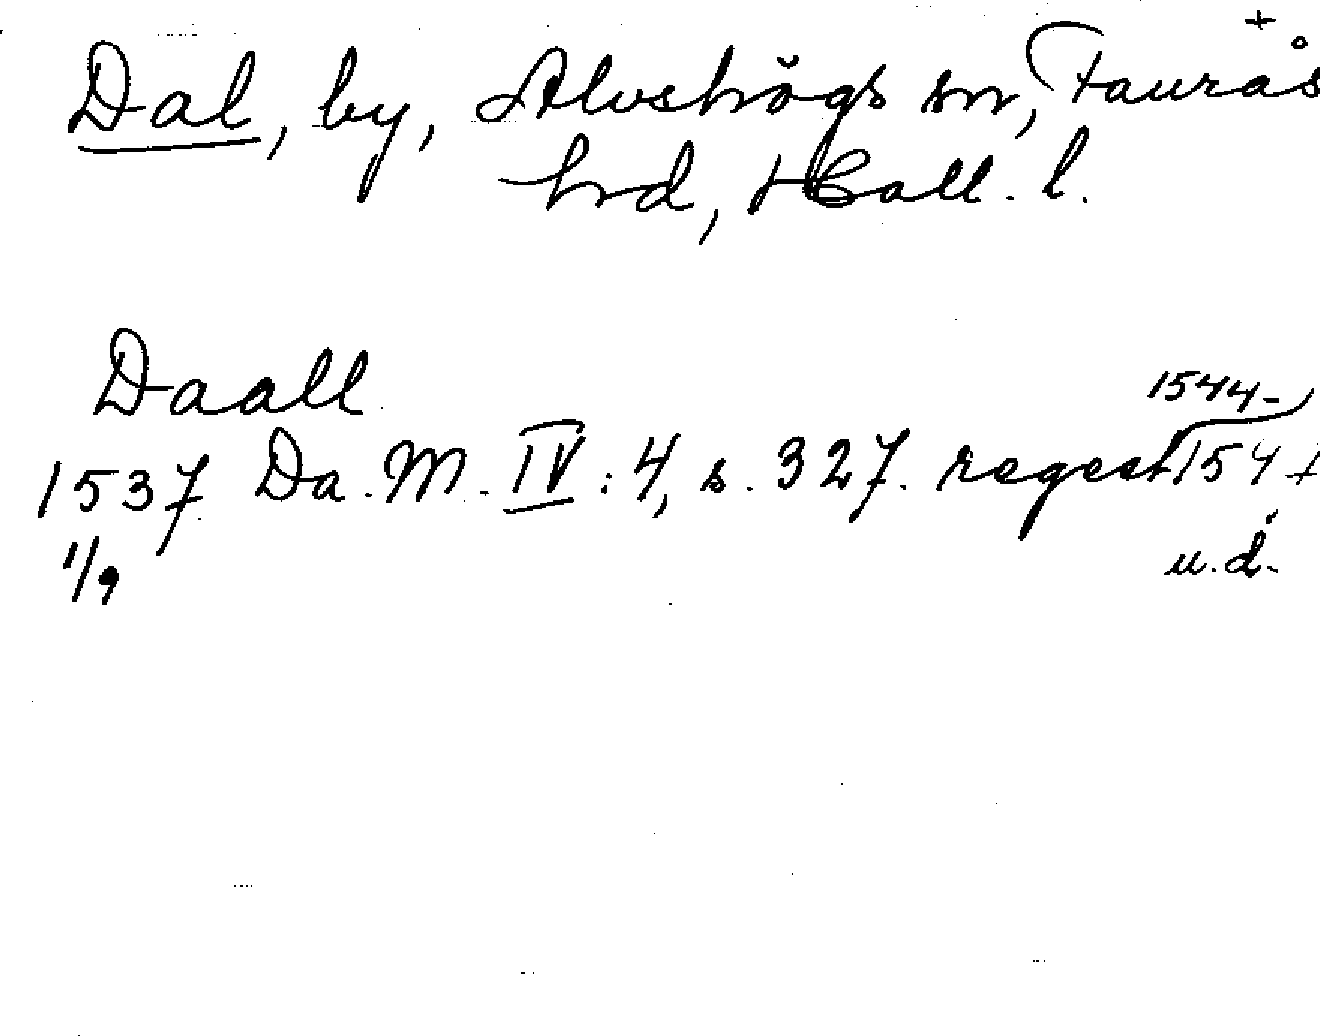 +
Dal, by, Alvshögs sn, Faurås
hrd, Hall. l.
Daall
1544-
1537 Da. M. IV : 4, s. 327. regest 154
1/9
u.d.